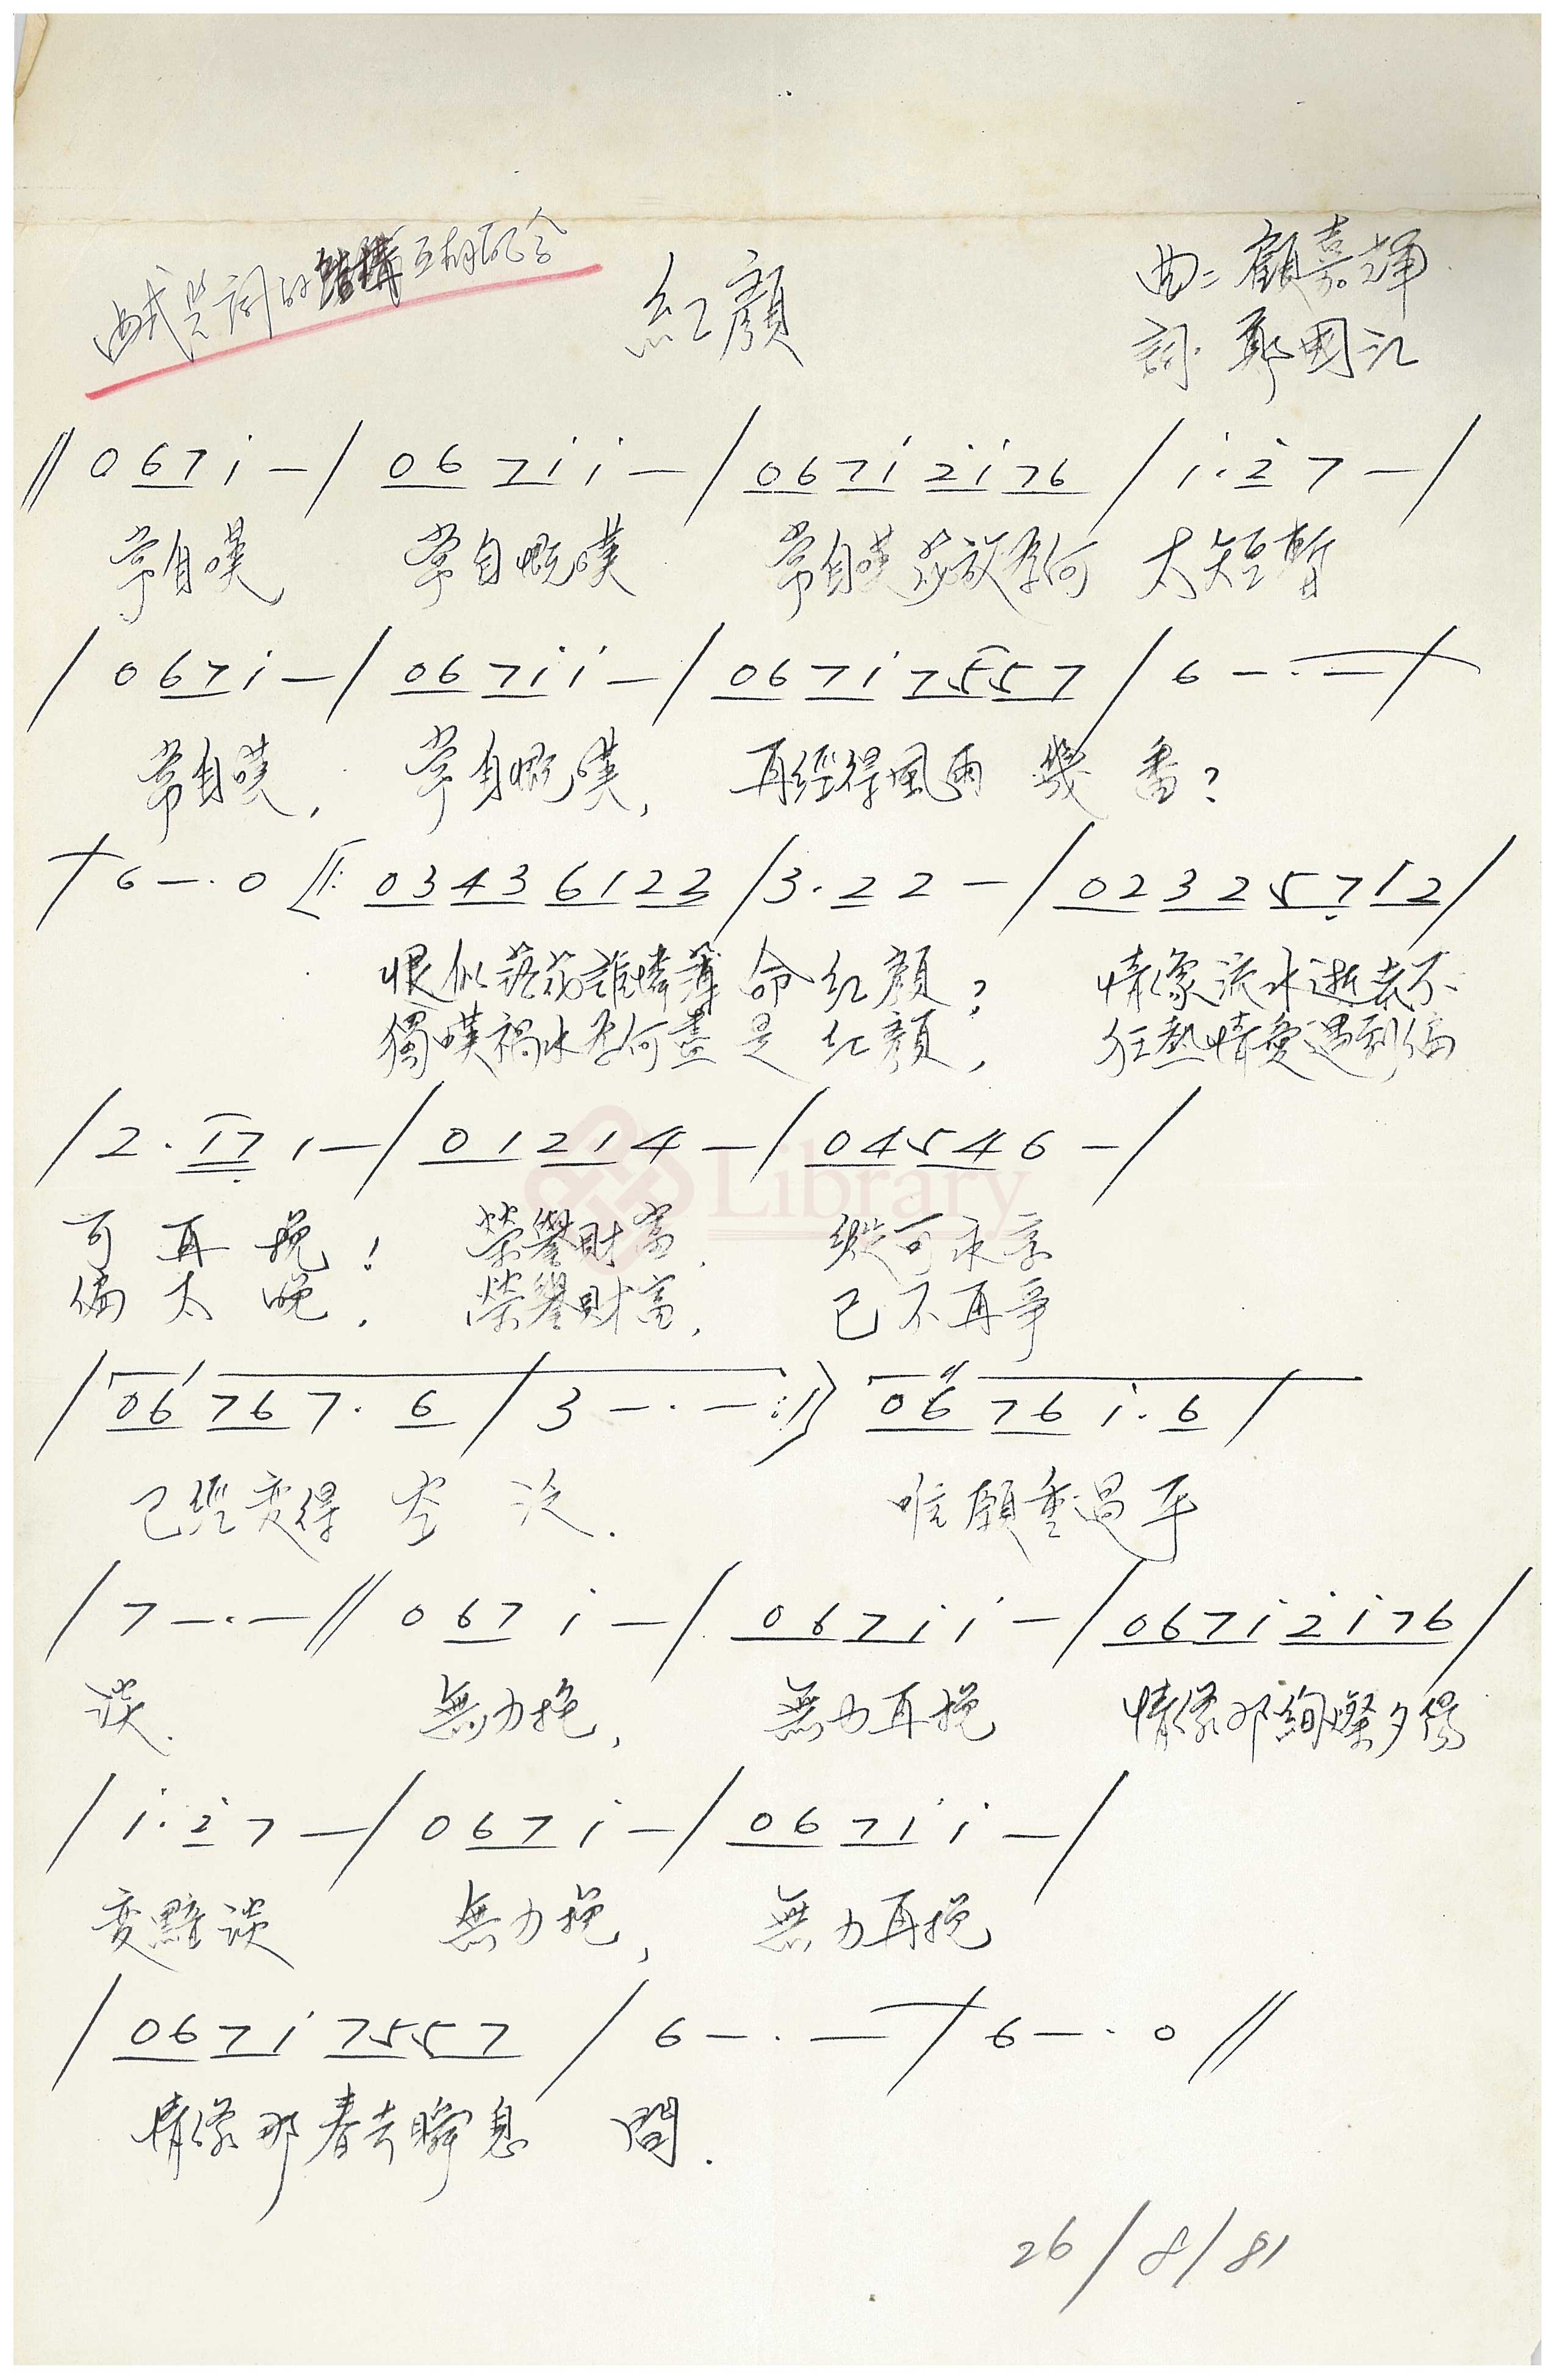 曲式與詞的結構互相配合
紅顏
曲：顧嘉煇
詞：鄭國江
// 0 6 7 i — / 0 6 7 i i — / 0 6 7 i 2̇ i 7 6 / i · 2̇ 7 — /
常自嘆 常自慨嘆 常自嘆芬放為何 太短暫
/ 0 6 7 i — / 0 6 7 i i — / 0 6 7 i 7 5 5 7 / 6 — · — /
常自嘆， 常自慨嘆， 再經得風雨 幾 番？
/ 6 — · 0 ⟦: 0 3 4 3 6 1 2 2 / 3 · 2 2 — / 0 2 3 2 5 7̣ 1 2 /
恨似落花誰憐薄 命 紅 顏？ 情像流水逝去不
獨嘆禍水為何盡 是 紅 顏， 狂熱情愛遇到偏
/ 2 · 1 7̣ 1 — / 0 1 2 1 4 — / 0 4 5 4 6 — /
可 再 挽！ 榮譽財富， 縱可永享
偏 太 晚， 榮譽財富， 已不再爭
Library
/ 0 6 7 6 7 · 6 / 3 — · — :⟧ 0 6 7 6 i · 6 /
已經變得 空 泛． 唯願重過平
/ 7 — · — // 0 6 7 i — / 0 6 7 i i — / 0 6 7 i 2̇ i 7 6 /
淡． 無力挽， 無力再挽 情像那絢燦夕陽
/ i · 2̇ 7 — / 0 6 7 i — / 0 6 7 i i — /
變黯淡 無力挽， 無力再挽
/ 0 6 7 i 7 5 5 7 / 6 — · — / 6 — · 0 //
情像那春去瞬息 間．
26/8/81